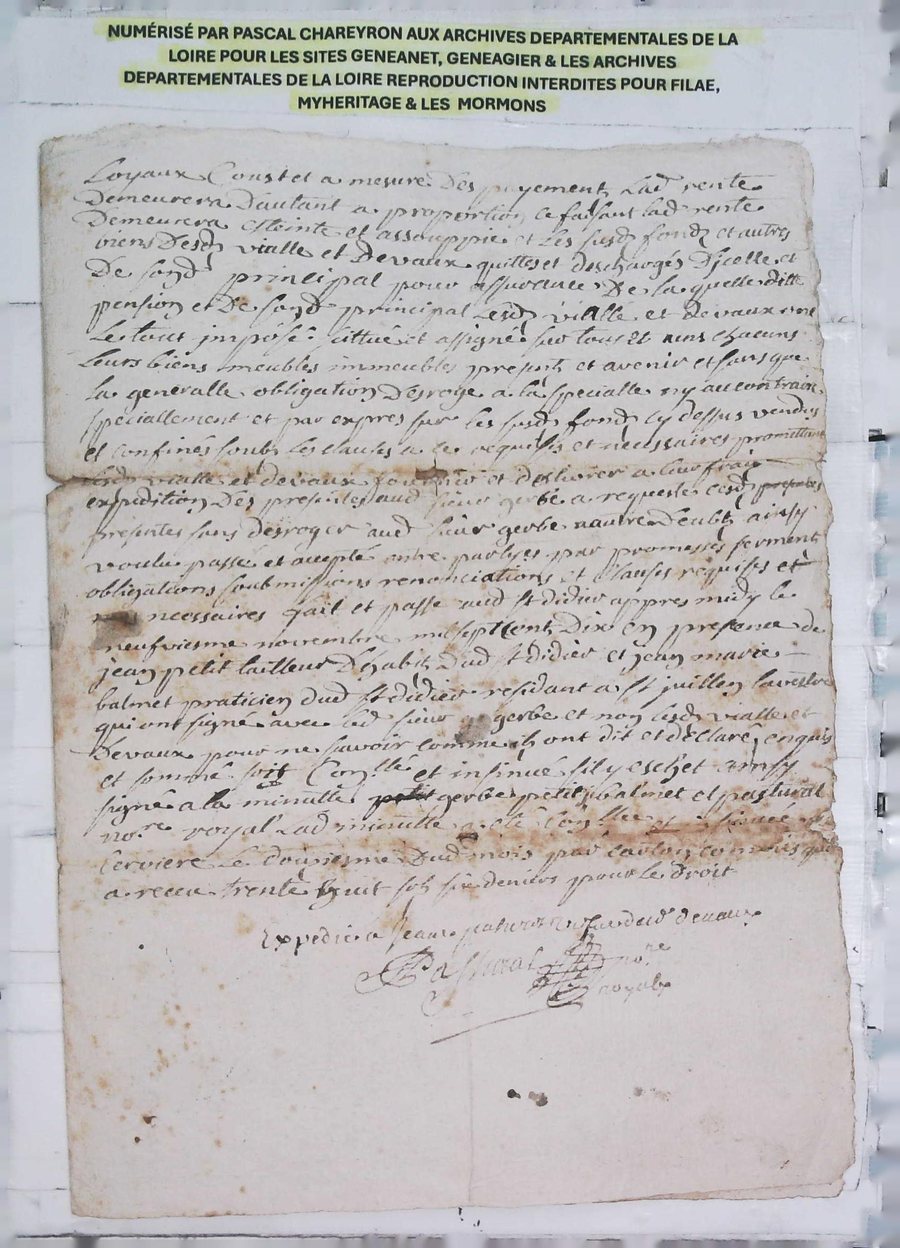 NUMÉRISÉ PAR PASCAL CHAREYRON AUX ARCHIVES DEPARTEMENTALES DE LA
LOIRE POUR LES SITES GENEANET, GENEAGIER & LES ARCHIVES
DEPARTEMENTALES DE LA LOIRE REPRODUCTION INTERDITES POUR FILAE,
MYHERITAGE & LES MORMONS
Loyaux Coust et a mesure Des payement Lad rente
Demeurera Dautant a proportion ce faisant lad rente
Demeurera esteinte et assouppie et Les susd fondz et autres
biens Desd vialle et Devaux quittes et deschargés Dicelle et
De sond principal pour assurance De la quelle ditte
pension et De sond principal Lesd vialle et devaux ont
Le tout imposé cittué et assigné sur tous et uns chacuns
Leurs biens meubles immeubles presents et avenir et sans que
La generalle obligation Desroge a la specialle ny au contraire
speciallement et par expres sur les susd fondz cy dessus vendus
et confinés soubz les clauses a ce requises et necessaires promettant
lesd vialle et devaux fournir et deslivrer a leur frais
expedition Des presentes aud sieur gerbe a requeste cesd
presentes sans desroger aud sieur gerbe nautre Deubz ainsy
voulu passé et accepté entre partyes par promesses serment
obligations soubmissions renonciations et clauses requises et
necessaires fait et passé aud st didier appres midy le
neufviesme novembre mil sept cent Dix en presence de
jean petit tailleur D'habitz Dud st didier et jean marie
balmet praticien dud st didier residant a st juillen lavestre
qui ont signé avec led sieur gerbe et non lesd vialle et
Devaux pour ne savoir comme ilz ont dit et déclaré enquis
et sommé soit Con.llé et insinué sil y eschet ainsy
signé a la minutte gerbe petit balmet et pastural
no.re royal Lad minutte a été Con.llée
Cerviere Le douziesme Dud mois par commis qui
a receu trente huit solz six deniers pour le droit
Expedié a Jean devaux
Pastural no.re
royal